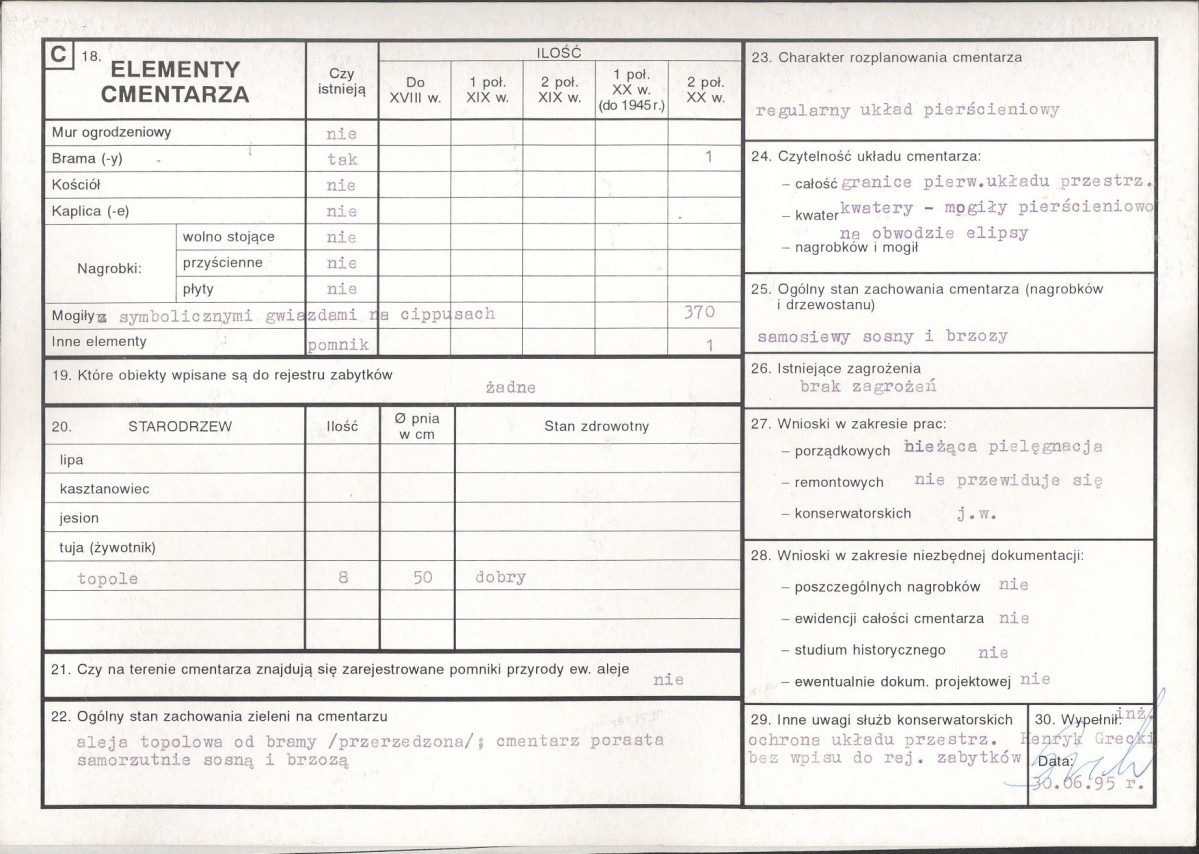 C 18. ELEMENTY CMENTARZA
Czy istnieją
ILOŚĆ
Do XVIII w.
1 poł. XIX w.
2 poł. XIX w.
1 poł. XX w. (do 1945 r.)
2 poł. XX w.
Mur ogrodzeniowy nie
Brama (-y) tak 1
Kościół nie
Kaplica (-e) nie
Nagrobki:
wolno stojące nie
przyścienne nie
płyty nie
Mogiły z symbolicznymi gwiazdami na cippusach 370
Inne elementy pomnik 1
19. Które obiekty wpisane są do rejestru zabytków
żadne
20. STARODRZEW Ilość Ø pnia w cm Stan zdrowotny
lipa
kasztanowiec
jesion
tuja (żywotnik)
topole 8 50 dobry
21. Czy na terenie cmentarza znajdują się zarejestrowane pomniki przyrody ew. aleje
nie
22. Ogólny stan zachowania zieleni na cmentarzu
aleja topolowa od bramy /przerzedzona/; cmentarz porasta
samorzutnie sosną i brzozą
23. Charakter rozplanowania cmentarza
regularny układ pierścieniowy
24. Czytelność układu cmentarza:
– całość granice pierw.układu przestrz.
– kwater kwatery - mogiły pierścieniowo
na obwodzie elipsy
– nagrobków i mogił
25. Ogólny stan zachowania cmentarza (nagrobków
i drzewostanu)
samosiewy sosny i brzozy
26. Istniejące zagrożenia
brak zagrożeń
27. Wnioski w zakresie prac:
– porządkowych bieżąca pielęgnacja
– remontowych nie przewiduje się
– konserwatorskich j.w.
28. Wnioski w zakresie niezbędnej dokumentacji:
– poszczególnych nagrobków nie
– ewidencji całości cmentarza nie
– studium historycznego nie
– ewentualnie dokum. projektowej nie
29. Inne uwagi służb konserwatorskich
ochrona układu przestrz.
bez wpisu do rej. zabytków
30. Wypełnił: inż.
Henryk Grecki
Data:
30.06.95 r.